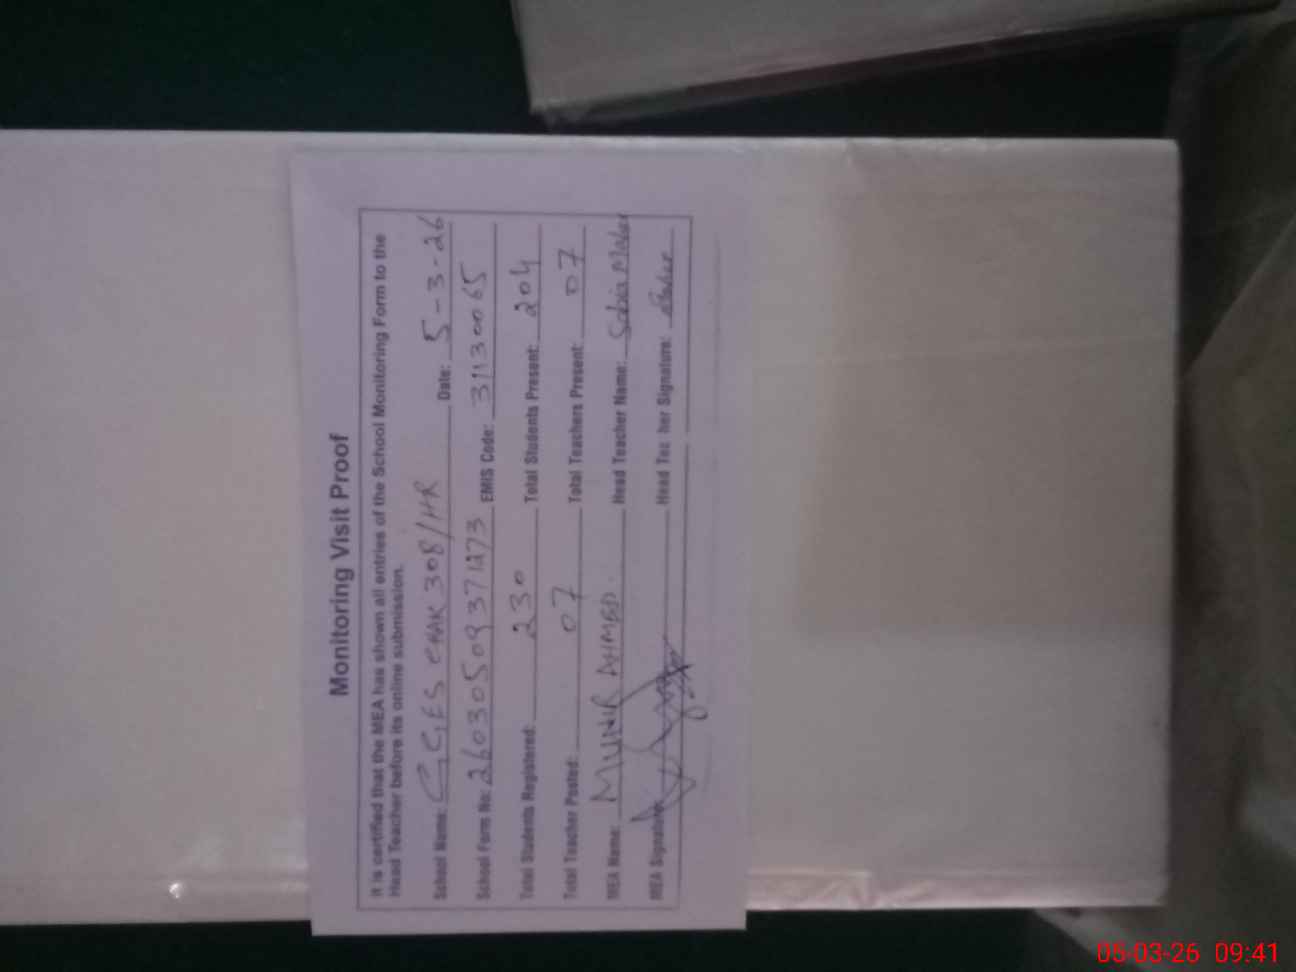 Monitoring Visit Proof
It is certified that the MEA has shown all entries of the School Monitoring Form to the
Head Teacher before its online submission.
School Name: GGES CHAK 308/HR Date: 5-3-26
School Form No: 26030509371273 EMIS Code: 31130065
Total Students Registered: 230 Total Students Present: 204
Total Teacher Posted: 07 Total Teachers Present: 07
MEA Name: MUNIR AHMED. Head Teacher Name: Sobia
MEA Signature: Head Tec her Signature:
05-03-26 09:41